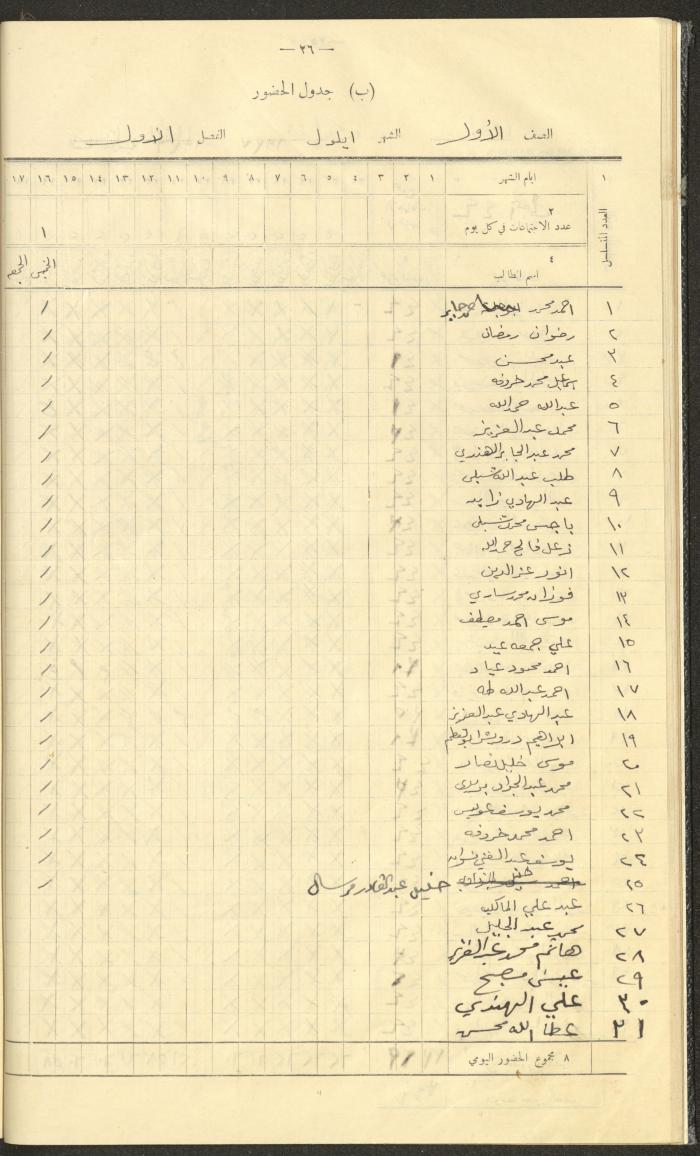 — ٢٦ —
(ب) جدول الحضور
الصف الأول الشهر ايلول الفصل الاول
١ ايام الشهر ١ ٢ ٣ ٤ ٥ ٦ ٧ ٨ ٩ ١٠ ١١ ١٢ ١٣ ١٤ ١٥ ١٦ ١٧
العدد المتسلسل
٢
عدد الاجتماعات في كل يوم ١
٤
اسم الطالب الخميس الجمعه
١ احمد محمد
٢ رضوان رمضان /
٣ عيد محسن /
٤ اسماعيل محمد خروفه /
٥ عبدالله حمدالله /
٦ محمد عبد العزيز /
٧ محمد عبد الجابر الهندي /
٨ طلب عبد الله شبلي /
٩ عبد الهادي زايد /
١٠ باجس محمد شبلي /
١١ زعل فالح حمدالله /
١٢ انور عز الدين /
١٣ فوزان محمد ساري /
١٤ موسى احمد مصطفى /
١٥ علي جمعه عيد /
١٦ احمد محمود عياد /
١٧ احمد عبدالله طه /
١٨ عبد الهادي عبد العزيز /
١٩ ابراهيم درويش /
٢٠ موسى خليل نصار /
٢١ محمد عبد الجواد /
٢٢ محمد يوسف عويس /
٢٣ احمد محمد خروفه /
٢٤ يوسف عبد الغني /
٢٥ خليل عبد القادر /
٢٦ عبد علي المالكي
٢٧ محمد عبد الجليل
٢٨ هاشم محمد عبد العزيز
٢٩ عيسى مصبح
٣٠ علي الهندي
٣١ عطا الله محسن
٨ مجموع الحضور اليومي